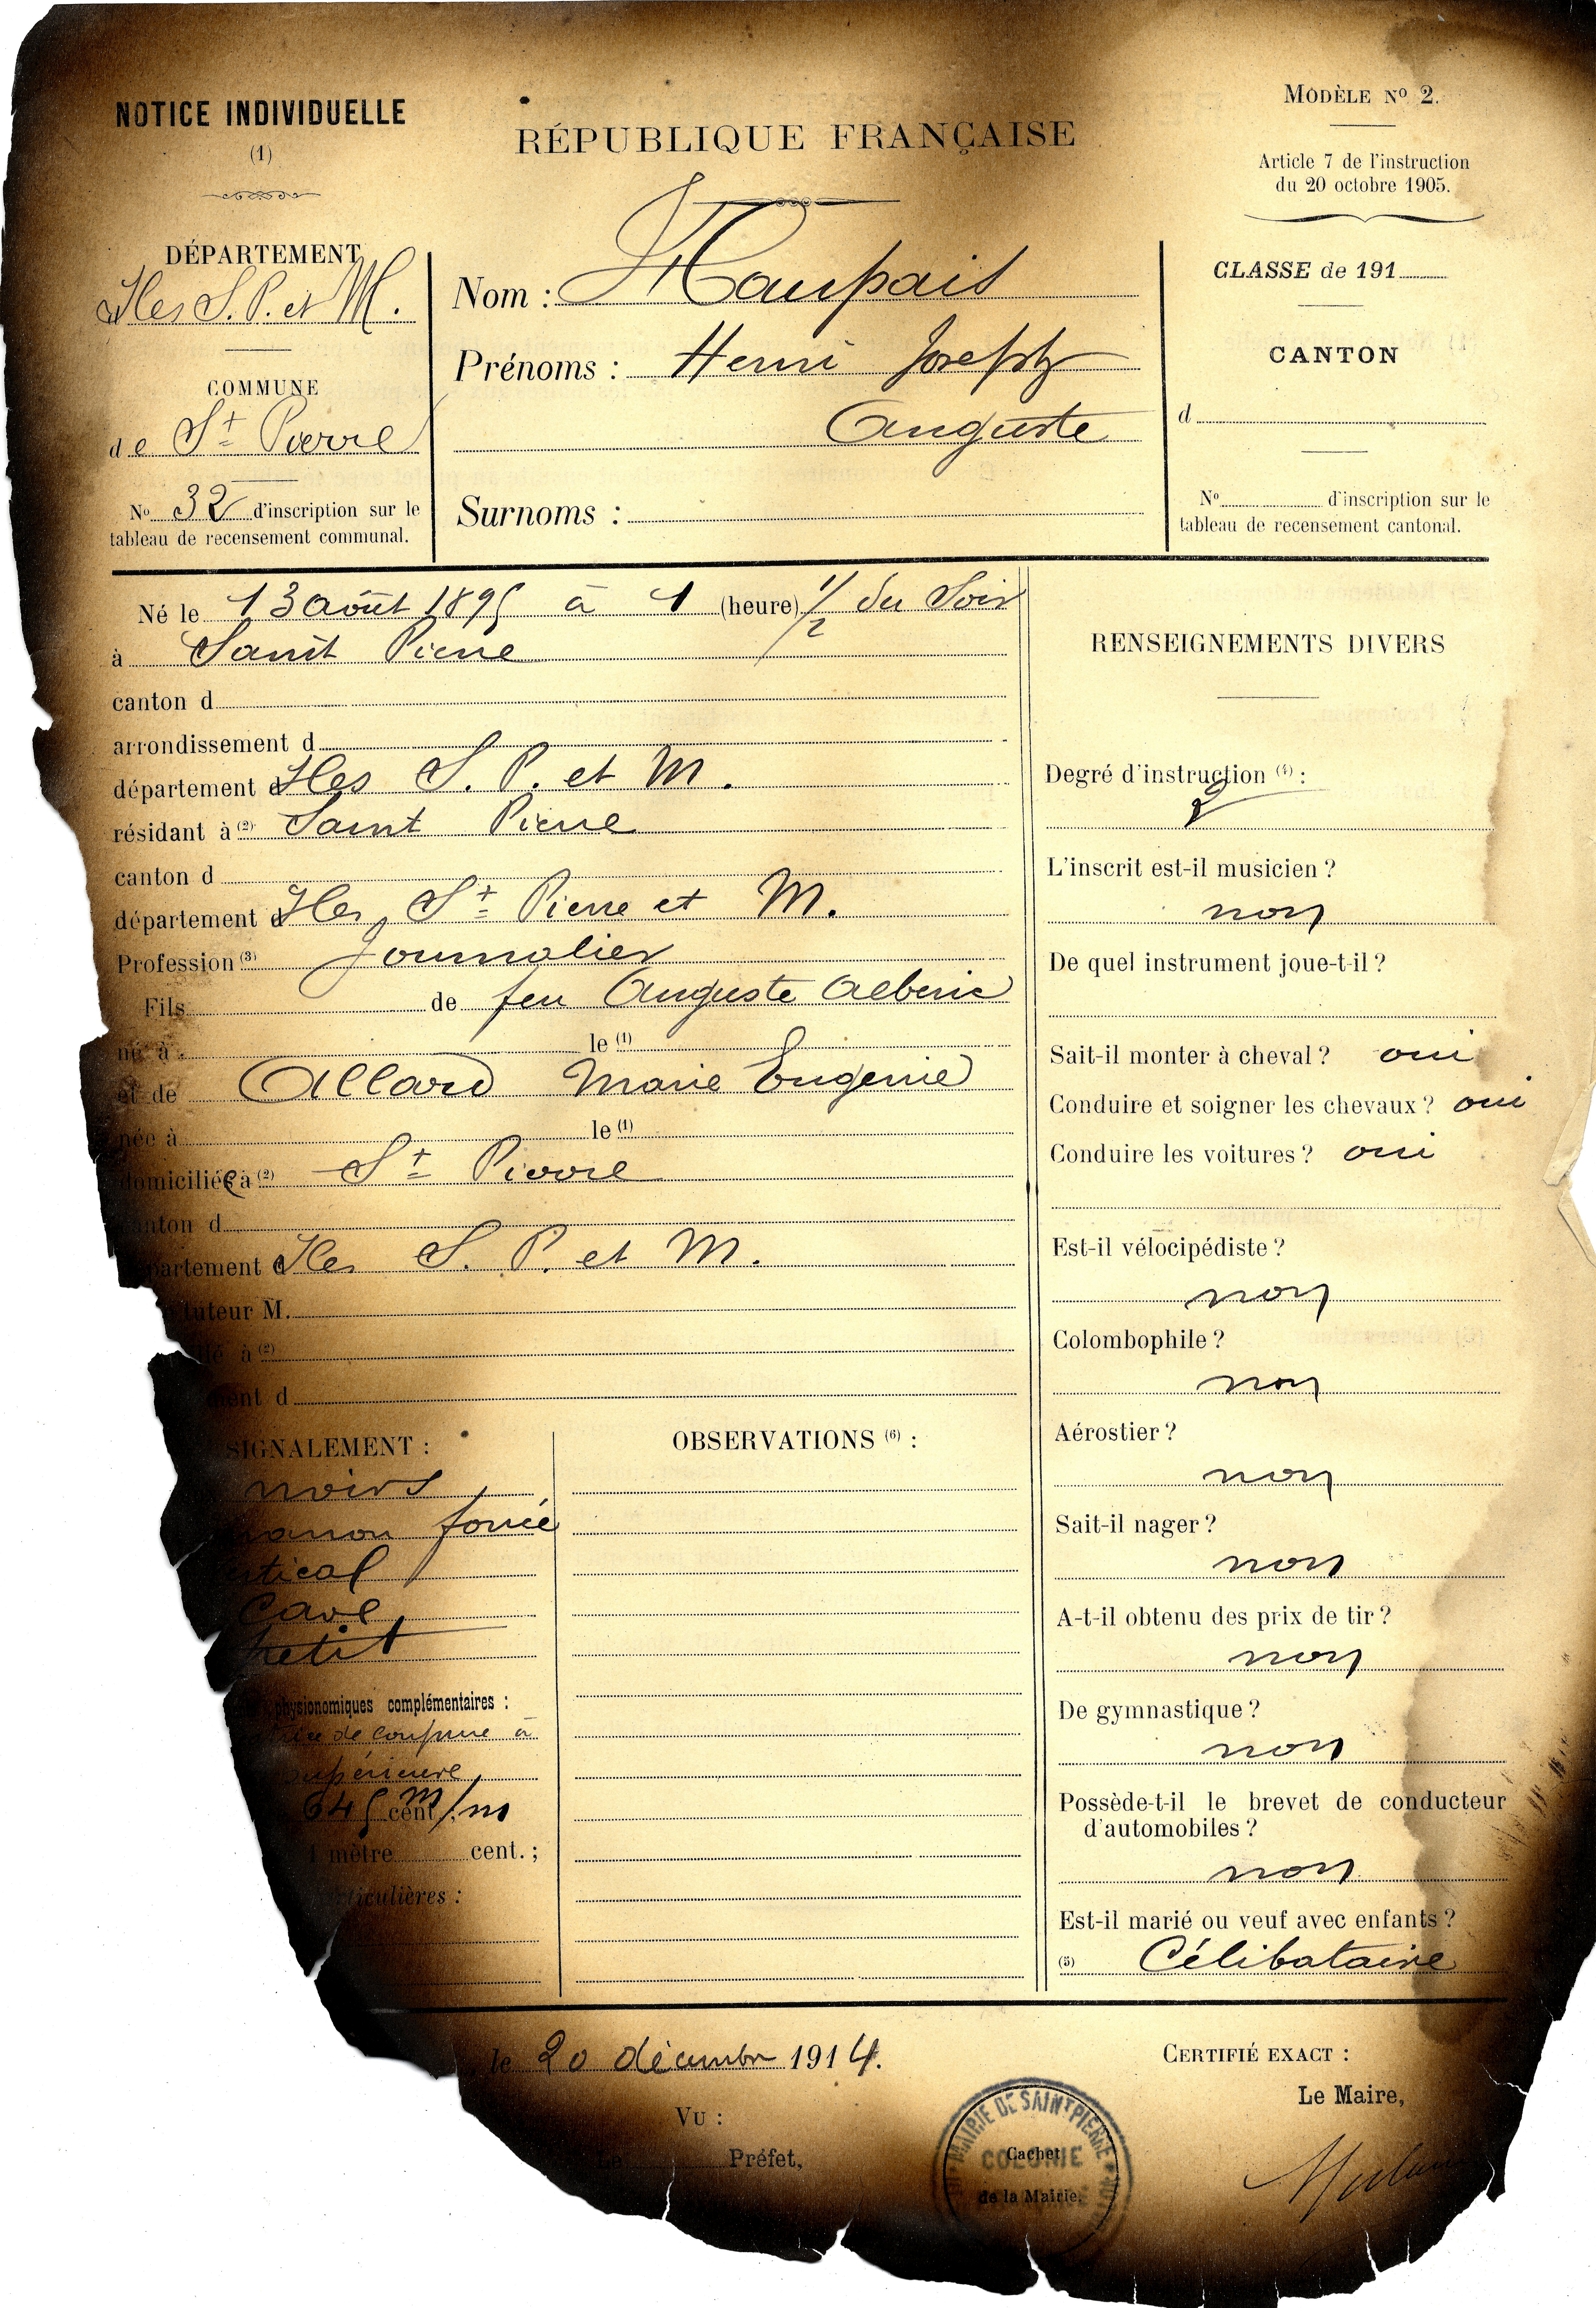 NOTICE INDIVIDUELLE
(1)
RÉPUBLIQUE FRANÇAISE
MODÈLE No 2.
Article 7 de l'instruction
du 20 octobre 1905.
DÉPARTEMENT
Iles S. P. et M.
COMMUNE
de St Pierre
No 32 d'inscription sur le
tableau de recensement communal.
Nom : Haupais
Prénoms : Henri Joseph
Auguste
Surnoms :
CLASSE de 191
CANTON
d
No d'inscription sur le
tableau de recensement cantonal.
Né le 13 août 1895 à 1 (heure) 1/2 du Soir
à Saint Pierre
canton d
arrondissement d
département d Iles S. P. et M.
résidant à (2) Saint Pierre
canton d
département d Iles St Pierre et M.
Profession (3) Journalier
Fils de feu Auguste Alberic
né à le (1)
et de Allard Marie Eugenie
née à le (1)
domiciliée à (2) St Pierre
canton d
partement d Iles S. P. et M.
tuteur M.
lié à (2)
ment d
SIGNALEMENT :
noirs
foncé
tical
Cave
petit
physionomiques complémentaires :
de coupure à
supérieure
645 cent m/m
1 mètre cent. ;
rticulières :
OBSERVATIONS (6) :
RENSEIGNEMENTS DIVERS
Degré d'instruction (4) :
2
L'inscrit est-il musicien ?
non
De quel instrument joue-t-il ?
Sait-il monter à cheval ? oui
Conduire et soigner les chevaux ? oui
Conduire les voitures ? oui
Est-il vélocipédiste ?
non
Colombophile ?
non
Aérostier ?
non
Sait-il nager ?
non
A-t-il obtenu des prix de tir ?
non
De gymnastique ?
non
Possède-t-il le brevet de conducteur
d'automobiles ?
non
Est-il marié ou veuf avec enfants ?
(5) Célibataire
le 20 décembre 1914.
VU :
Le Préfet,
MAIRIE DE SAINT PIERRE
COLONIE
Cachet
de la Mairie.
CERTIFIÉ EXACT :
Le Maire,